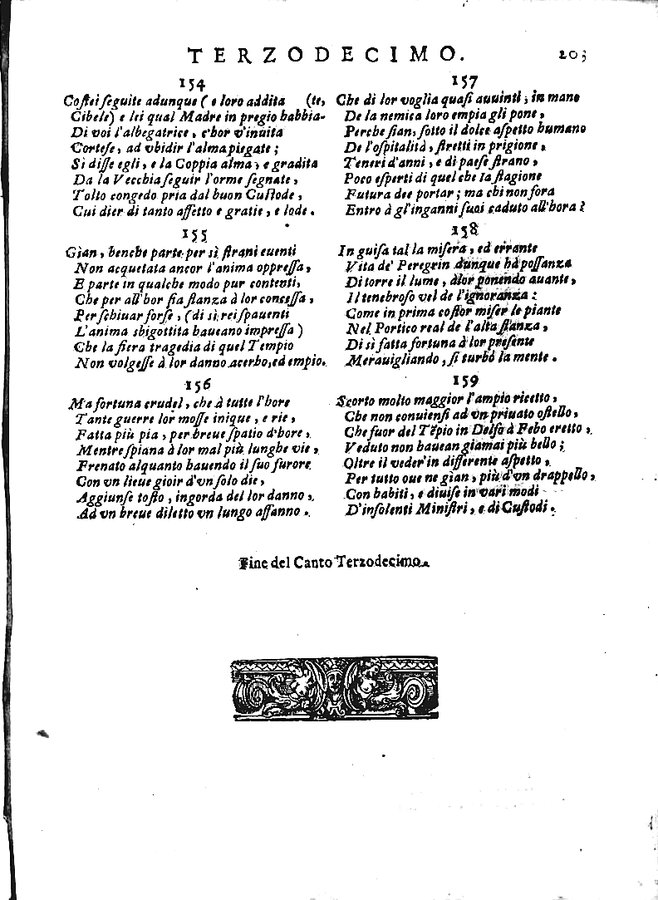 TERZODECIMO. 203
154
Costei seguite adunque ( e loro addita (te,
Cibele) e lei qual Madre in pregio habbia-
Di voi l'albegatrice, c'hor v'inuita
Cortese, ad vbidir l'alma piegate;
Sì disse egli, e la Coppia alma, e gradita
Da la Vecchia seguir l'orme segnate,
Tolto congedo pria dal buon Custode,
Cui dier di tanto affetto e gratie, e lode.
155
Gian, benche parte per sì strani euenti
Non acquetata ancor l'anima oppressa,
E parte in qualche modo pur contenti,
Che per all'hor sia stanza à lor concessa,
Per schiuar forse, (di sì rei spauenti
L'anima sbigottita haueano impressa)
Che la fiera tragedia di quel Tempio
Non volgesse à lor danno acerbo, ed empio.
156
Ma fortuna crudel, che à tutte l'hore
Tante guerre lor mosse inique, e rie,
Fatta più pia, per breue spatio d'hore,
Mentre spiana à lor mal più lunghe vie,
Frenato alquanto hauendo il suo furore
Con vn lieue gioir d'vn solo die,
Aggiunse tosto, ingorda del lor danno,
Ad vn breue diletto vn lungo affanno.
157
Che di lor voglia quasi auuinti; in mano
De la nemica loro empia gli pone,
Perche sian, sotto il dolce aspetto humano
De l'ospitalità, stretti in prigione,
Teneri d'anni, e di paese strano,
Poco esperti di quel che la stagione
Futura dee portar; ma chi non fora
Entro à gl'inganni suoi caduto all'hora?
158
In guisa tal la misera, ed errante
Vita de' Peregrin dunque hà possanza
Di torre il lume, à lor ponendo auante,
Il tenebroso vel de l'ignoranza:
Come in prima costor miser le piante
Nel Portico real de l'alta stanza,
Di sì fatta fortuna à lor presente
Merauigliando, si turbò la mente.
159
Scorto molto maggior l'ampio ricetto,
Che non conuiensi ad vn priuato ostello,
Che fuor del Tẽpio in Delfo à Febo eretto,
Veduto non hauean giamai più bello;
Oltre il veder'in differente aspetto,
Per tutto oue ne gian, più d'vn drappello,
Con habiti, e diuise in vari modi
D'insolenti Ministri, e di Custodi.
Fine del Canto Terzodecimo.